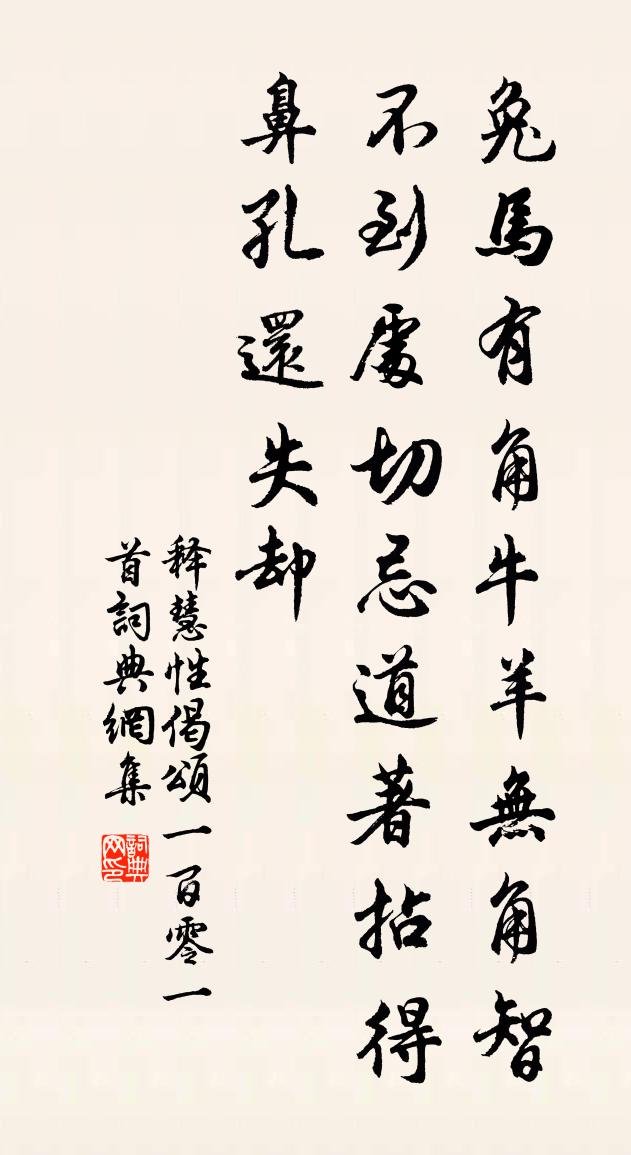 兔馬有角牛羊無角智
不到處切忌道著拈得
鼻孔還失却
释慧性偈頌一百零一
首詞典網集
詞典網印